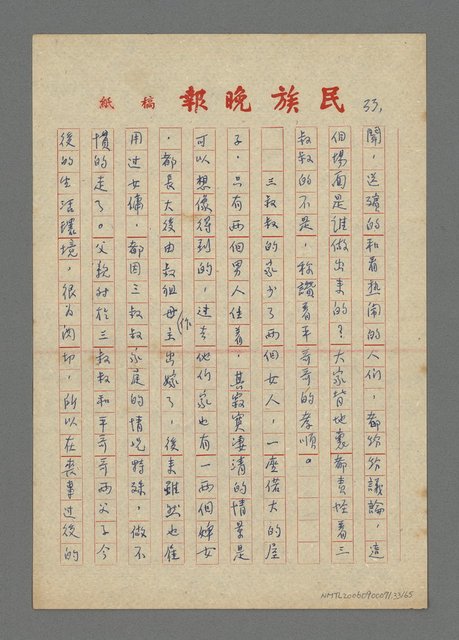 民族晚報 稿紙
33,
鬧，送殯的和看熱鬧的人們，都紛紛議論，這
個場面是誰做出來的？大家背地裏都責怪着三
叔叔的不是，稱讚着平哥哥的孝順。
三叔叔的家少了兩個女人，一座偌大的屋
子，只有兩個男人住着，其寂寞凄清的情景是
可以想像得到的，過去他們家也有一兩個婢女
，都長大後由叔祖母作主出嫁了，後來雖然也僱
用过女傭，都因三叔叔家庭的情況特殊，做不
慣的走了。父親对於三叔叔和平哥哥兩父子今
後的生活環境，很为関切，所以在喪事过後的
NMTL20060900071 33/65